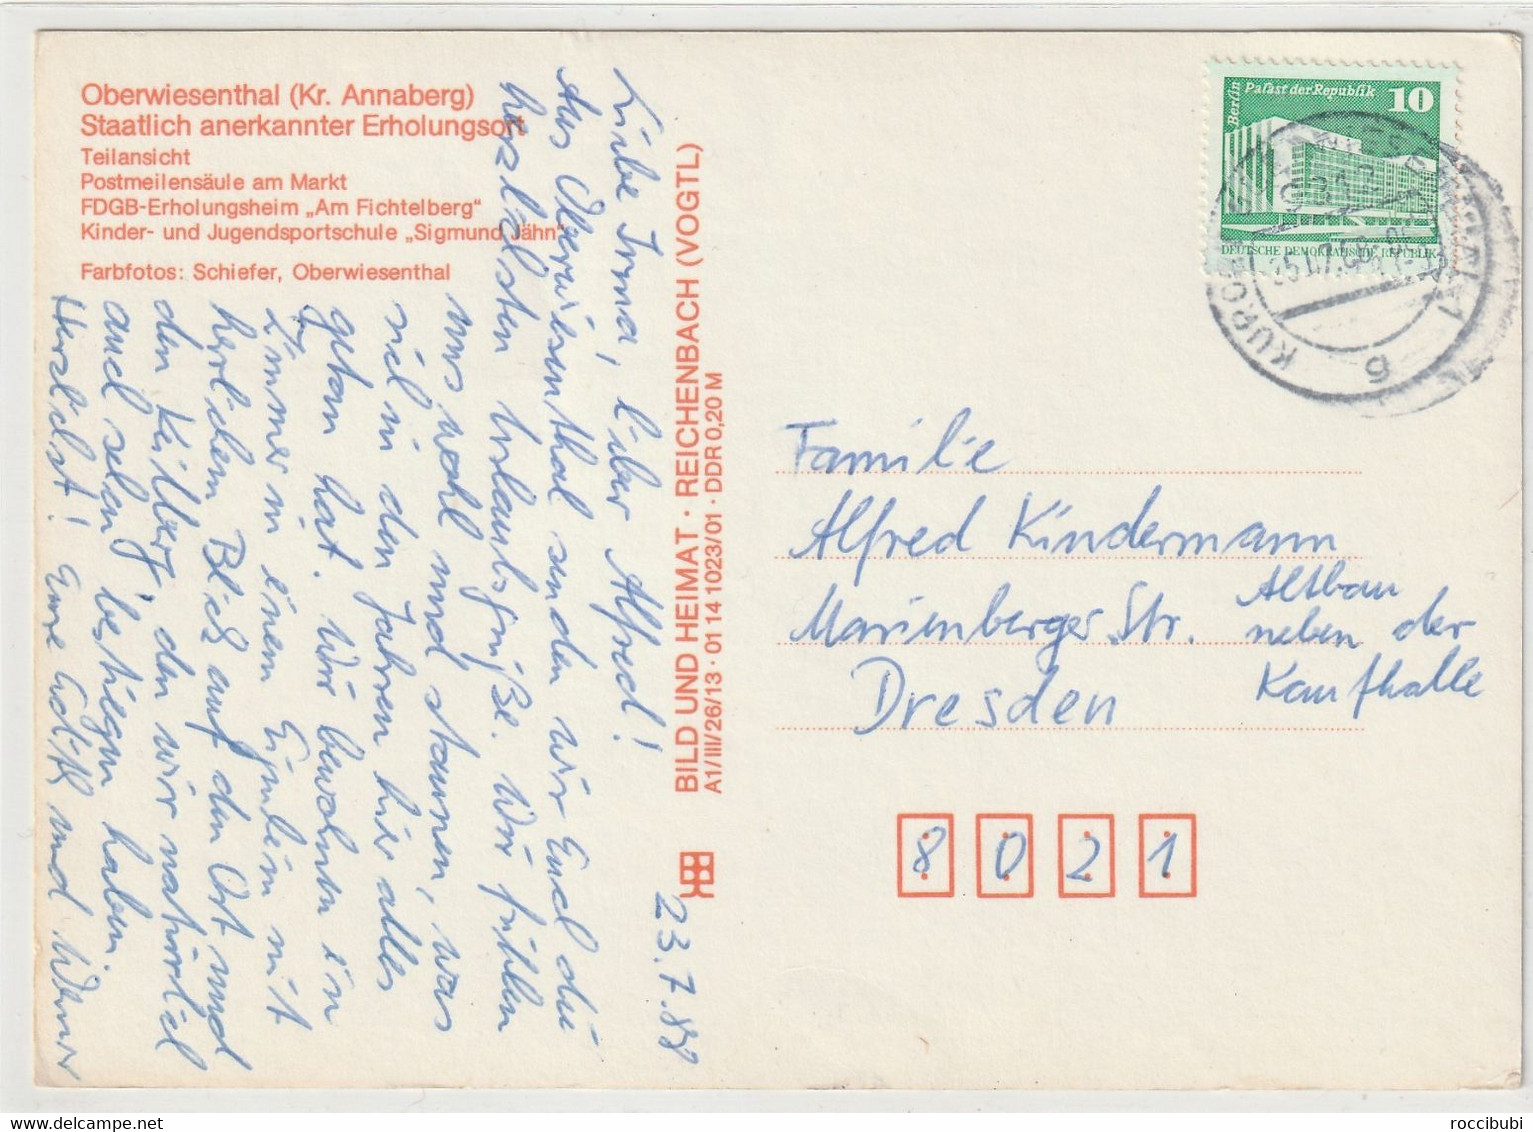 Oberwiesenthal (Kr. Annaberg)
Staatlich anerkannter Erholungsort
Teilansicht
Postmeilensäule am Markt
FDGB-Erholungsheim „Am Fichtelberg“
Kinder- und Jugendsportschule „Sigmund Jähn“
Farbfotos: Schiefer, Oberwiesenthal
23.7.88
Liebe Irma, lieber Alfred!
Aus Oberwiesenthal senden wir Euch die
herzlichsten Urlaubsgrüße. Wir fühlen
uns wohl und staunen, was
sich in den Jahren hier alles
getan hat. Wir bewohnen ein
Zimmer in einem Eigenheim mit
herrlichem Blick auf den Ort und
den Keilberg, den wir natürlich
auch schon bestiegen haben.
Herzlichst! Eure Edith und Werner
BILD UND HEIMAT · REICHENBACH (VOGTL)
A1/III/26/13 · 01 14 1023/01 · DDR 0,20 M
Berlin Palast der Republik 10
DEUTSCHE DEMOKRATISCHE REPUBLIK
KURORT
6
Familie
Alfred Kindermann
Marienberger Str.
Altbau
neben der
Kaufhalle
Dresden
8021
roccibubi